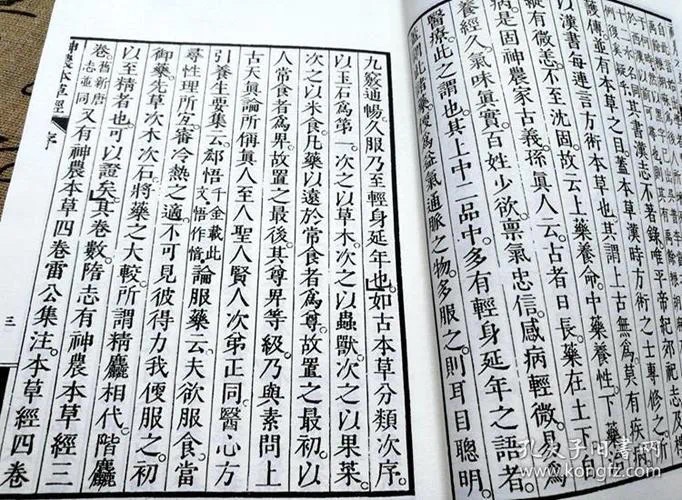 其書漢志不著錄。唯平帝紀郊祀志及
護傳並有本草之目。蓋本草漢時方術之士專修之。所
以漢書每連言方術本草也。其謂上古無爲。莫有疾
縱有微恙。不至沈固。故云上藥養命。中藥養性。下藥
病。是固神農家古義。孫眞人云。古者日長。藥在土下。
養經久。氣味眞實。百姓少欲。稟氣忠信。感病輕微。易爲
醫療。此之謂也。其上中二品中。多有輕身延年之語者。
藥便爲益氣通脈之物。多服之。則耳目聰明。
九竅通暢。久服乃至輕身延年也。如古本草分類次序。
以玉石爲第一。次之以草木。次之以蟲獸。次之以果菜。
次之以米食。凡藥以遠於常食者爲尊。故置之最初。以
人常食者爲卑。故置之最後。其尊卑等級。乃與素問上
古天眞論所稱眞人至人聖人賢人次第正同。醫心方
引養生要集云。郄悟千金載此文。悟作愔論服藥云。夫欲服食。當
尋性理所宜。審冷熱之適。不可見彼得力。我便服之。初
御藥。先草次木次石。將藥之大較。所謂精麤相代。階麤
以至精者也。可以證矣。其卷數。隋志有神農本草經三
卷舊新唐志並同又有神農本草四卷雷公集注。本草經四卷
神農本草經 序
三
孔夫子旧书网
www.kongfz.com